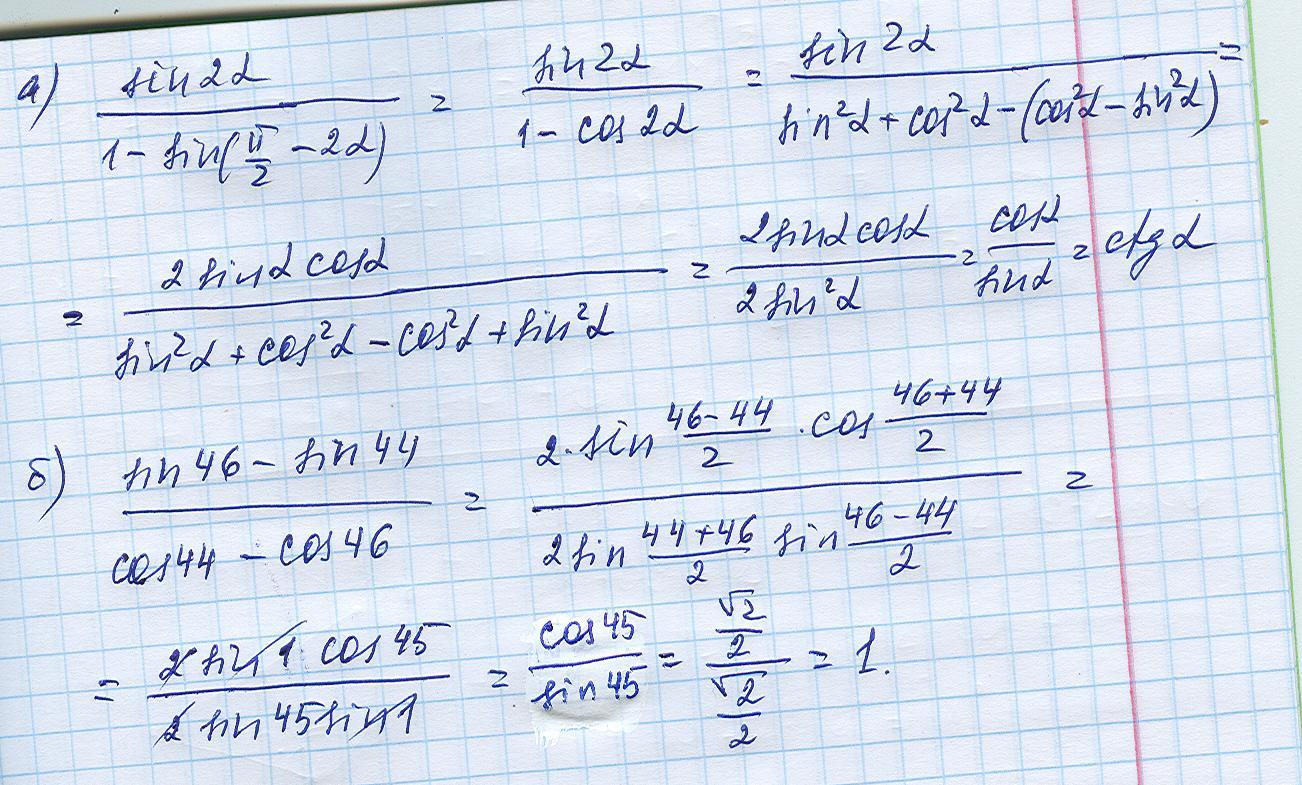 а) sin2α / (1 - sin(π/2 - 2α)) = sin2α / (1 - cos2α) = sin2α / (sin²α + cos²α - (cos²α - sin²α)) =
= 2sinα cosα / (sin²α + cos²α - cos²α + sin²α) = 2sinα cosα / (2sin²α) = cosα / sinα = ctgα
б) (sin46 - sin44) / (cos44 - cos46) = (2·sin (46-44)/2 · cos (46+44)/2) / (2sin (44+46)/2 sin (46-44)/2) =
= 2sin1 cos45 / (2sin45 sin1) = cos45 / sin45 = (√2/2) / (√2/2) = 1.